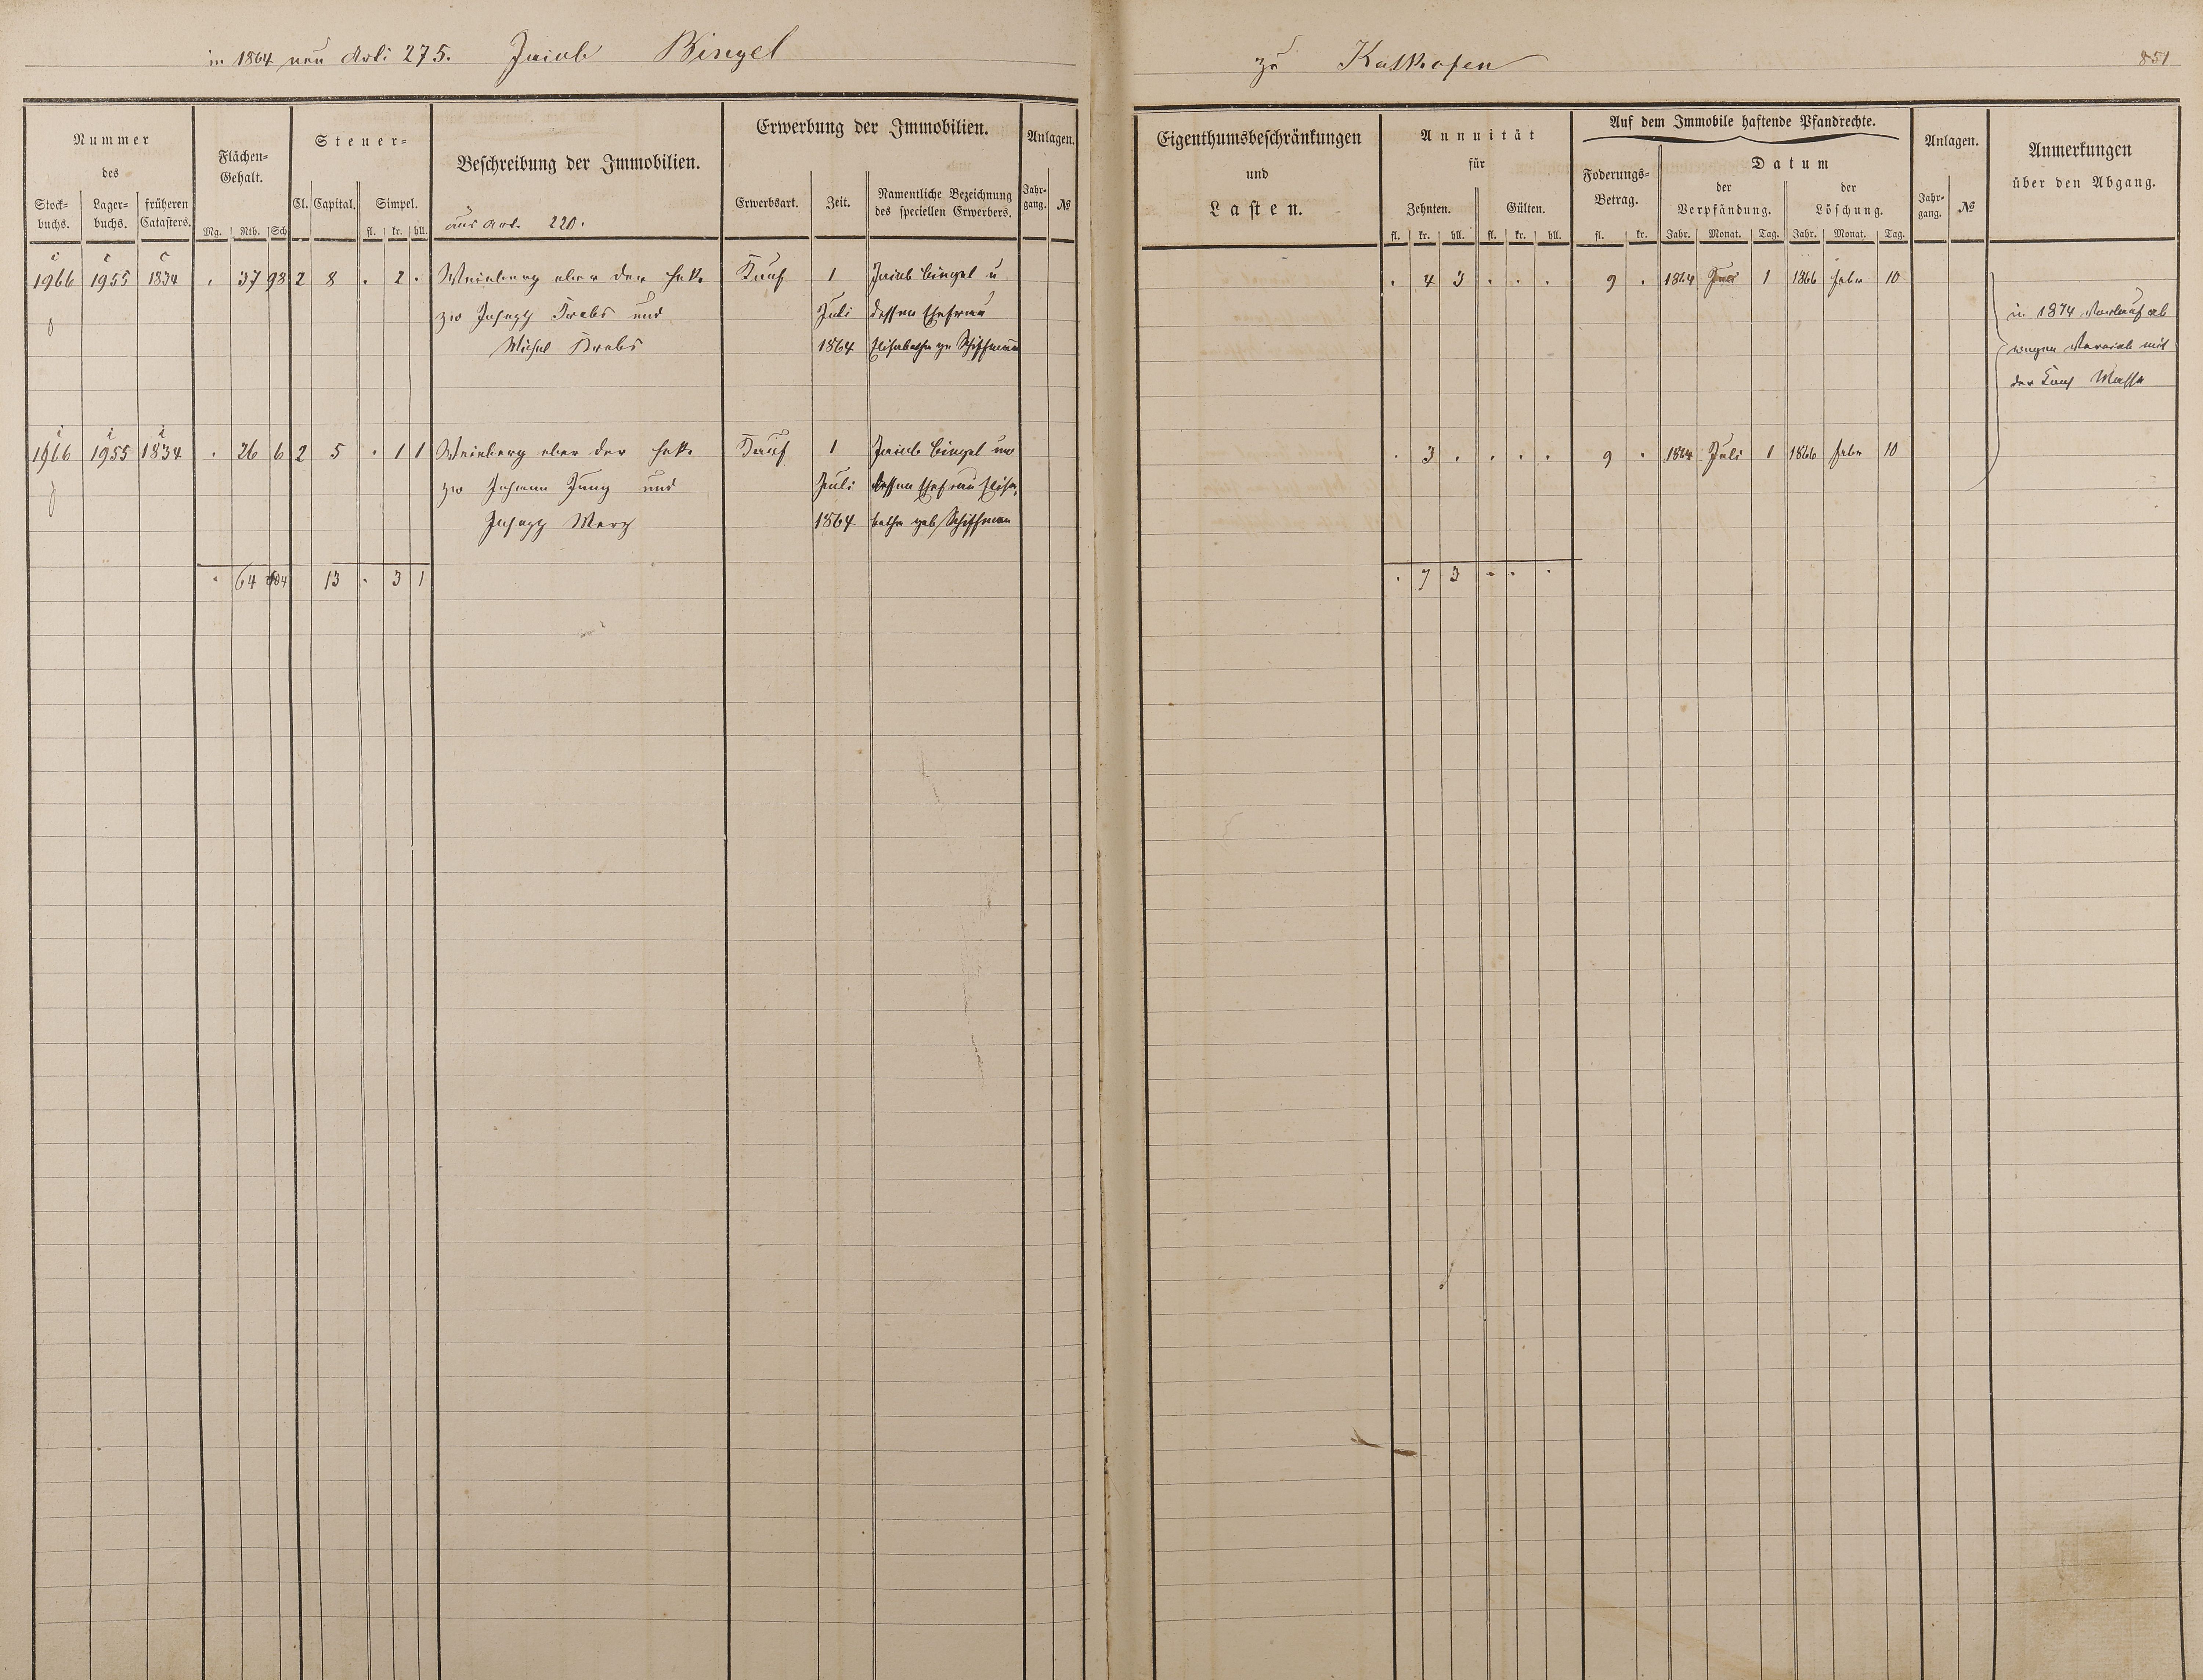 in 1864 neu Arti 275. Jacob Bingel
zu Kalkofen
851
Nummer
des
Stock-
buchs.
Lager-
buchs.
früheren
Catasters.
Flächen-
Gehalt.
Mg. Rth. Sch
Steuer-
Cl. Capital. Simpel.
fl. kr. hll.
Beschreibung der Immobilien.
aus Art. 220.
Erwerbung der Immobilien.
Erwerbsart. Zeit. Namentliche Bezeichnung
des speciellen Erwerbers.
Anlagen.
Jahr-
gang. №
Eigenthumsbeschränkungen
und
Lasten.
Annuität
für
Zehnten. Gülten.
fl. kr. hll. fl. kr. hll.
Auf dem Immobile haftende Pfandrechte.
Foderungs-
Betrag.
fl. kr.
Datum
der
Verpfändung.
der
Löschung.
Jahr. Monat. Tag. Jahr. Monat. Tag.
Anlagen.
Jahr-
gang. №
Anmerkungen
über den Abgang.
1966 1955 1834 . 37 98 2 8 . 2 . Weinberg ober der Kauf 1 Jacob Bingel u . 4 3 . . . 9 . 1864 Juli 1 1866 Febr 10
zw Joseph Krebs und Juli dessen Ehefrau
Michel Krebs 1864 Elisabetha ge Schiffmann
in 1874
wegen mit
der Masse
1966 1955 1834 . 26 6 2 5 . 1 1 Weinberg ober der Kauf 1 Jacob Bingel und . 3 . . . . 9 . 1864 Juli 1 1866 Febr 10
zw Johann Jung und Juli dessen Ehefrau Elisa
Joseph Merz 1864 betha geb Schiffman
. 64 04 13 . 3 1 . 7 3 . . .